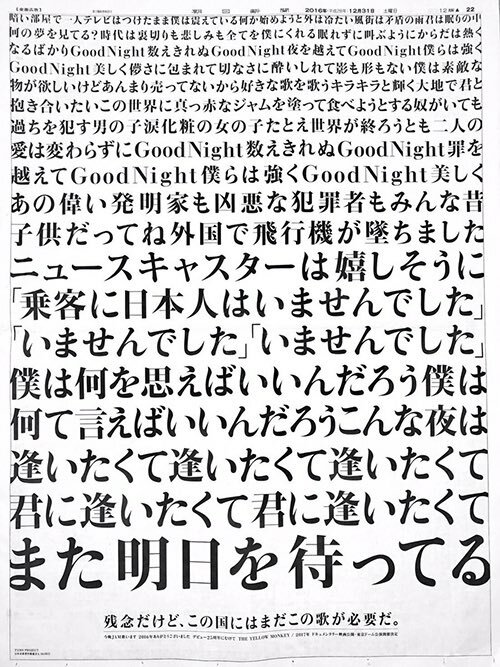 【全面広告】 朝日新聞 2016年(平成28年)12月31日 土曜日 12版▲ 22
暗い部屋で一人テレビはつけたまま僕は震えている何か始めようと外は冷たい風街は矛盾の雨君は眠りの中
何の夢を見てる?時代は裏切りも悲しみも全てを僕にくれる眠れずに叫ぶようにからだは熱く
なるばかりGoodNight数えきれぬGoodNight夜を越えてGoodNight僕らは強く
GoodNight美しく儚さに包まれて切なさに酔いしれて影も形もない僕は素敵な
物が欲しいけどあんまり売ってないから好きな歌を歌うキラキラと輝く大地で君と
抱き合いたいこの世界に真っ赤なジャムを塗って食べようとする奴がいても
過ちを犯す男の子涙化粧の女の子たとえ世界が終ろうとも二人の
愛は変わらずにGoodNight数えきれぬGoodNight罪を
越えてGoodNight僕らは強くGoodNight美しく
あの偉い発明家も凶悪な犯罪者もみんな昔
子供だってね外国で飛行機が墜ちました
ニュースキャスターは嬉しそうに
「乗客に日本人はいませんでした」
「いませんでした」「いませんでした」
僕は何を思えばいいんだろう僕は
何て言えばいいんだろうこんな夜は
逢いたくて逢いたくて逢いたくて
君に逢いたくて君に逢いたくて
また明日を待ってる
残念だけど、この国にはまだこの歌が必要だ。
THE YELLOW MONKEY